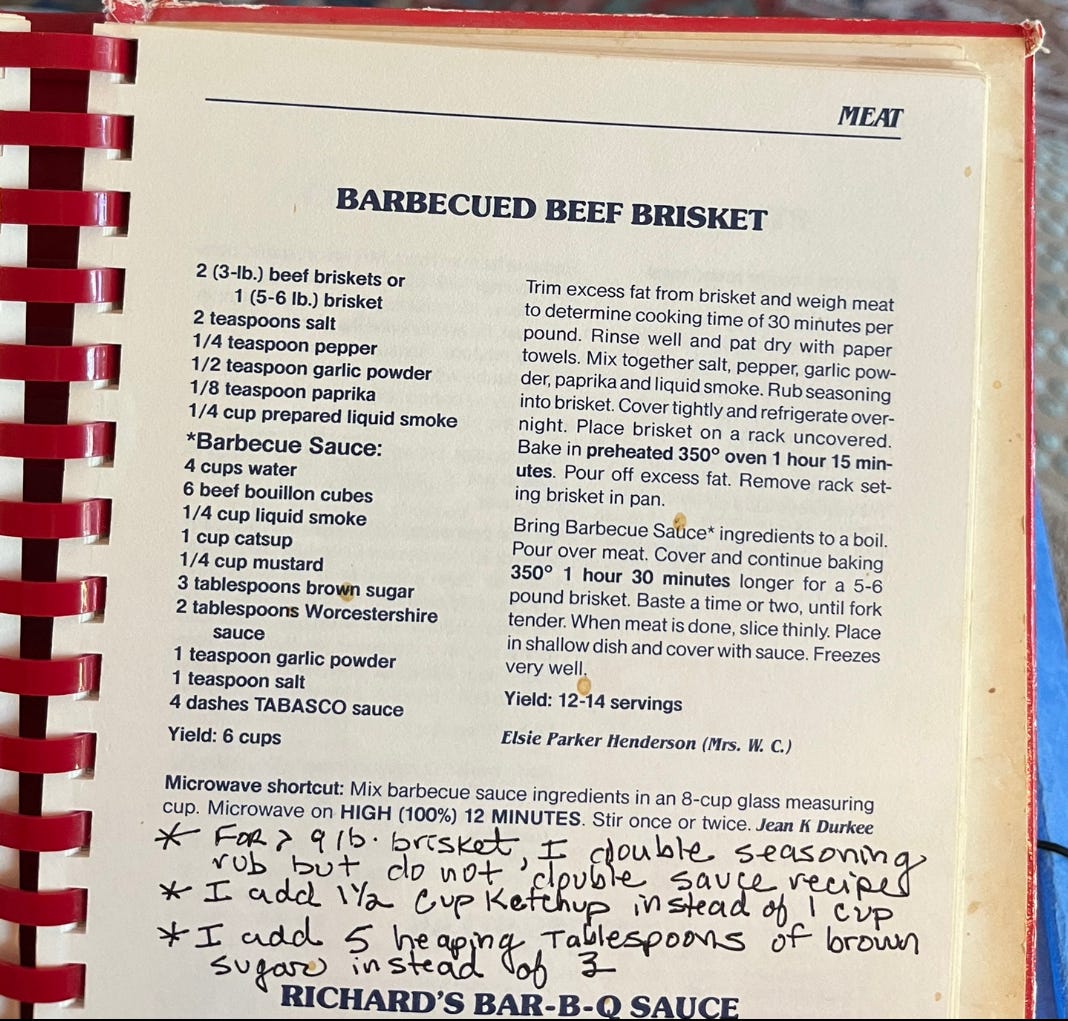 MEAT
BARBECUED BEEF BRISKET
2 (3-lb.) beef briskets or
1 (5-6 lb.) brisket
2 teaspoons salt
1/4 teaspoon pepper
1/2 teaspoon garlic powder
1/8 teaspoon paprika
1/4 cup prepared liquid smoke
*Barbecue Sauce:
4 cups water
6 beef bouillon cubes
1/4 cup liquid smoke
1 cup catsup
1/4 cup mustard
3 tablespoons brown sugar
2 tablespoons Worcestershire
sauce
1 teaspoon garlic powder
1 teaspoon salt
4 dashes TABASCO sauce
Yield: 6 cups
Trim excess fat from brisket and weigh meat
to determine cooking time of 30 minutes per
pound. Rinse well and pat dry with paper
towels. Mix together salt, pepper, garlic pow-
der, paprika and liquid smoke. Rub seasoning
into brisket. Cover tightly and refrigerate over-
night. Place brisket on a rack uncovered.
Bake in preheated 350° oven 1 hour 15 min-
utes. Pour off excess fat. Remove rack set-
ing brisket in pan.
Bring Barbecue Sauce* ingredients to a boil.
Pour over meat. Cover and continue baking
350° 1 hour 30 minutes longer for a 5-6
pound brisket. Baste a time or two, until fork
tender. When meat is done, slice thinly. Place
in shallow dish and cover with sauce. Freezes
very well.
Yield: 12-14 servings
Elsie Parker Henderson (Mrs. W. C.)
Microwave shortcut: Mix barbecue sauce ingredients in an 8-cup glass measuring
cup. Microwave on HIGH (100%) 12 MINUTES. Stir once or twice. Jean K Durkee
* FOR > 9 lb. brisket, I double seasoning
rub but do not double sauce recipe
* I add 1 1/2 cup Ketchup instead of 1 cup
* I add 5 heaping Tablespoons of brown
sugar instead of 3
RICHARD'S BAR-B-Q SAUCE